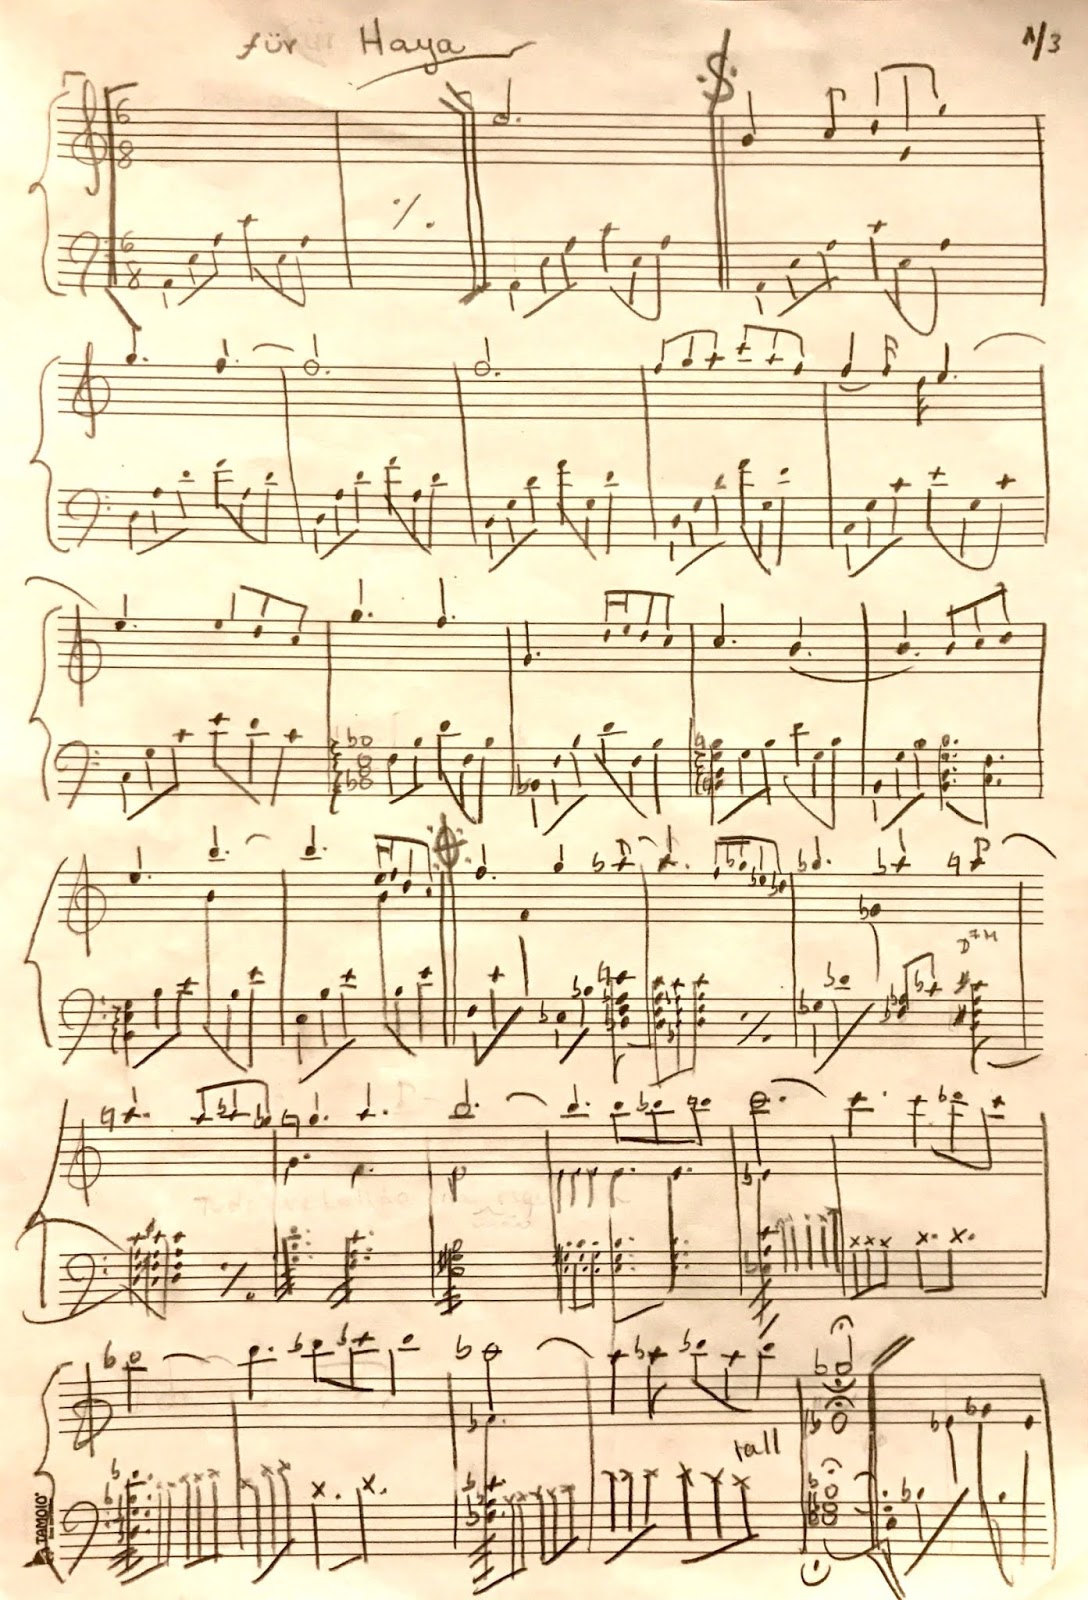 für Haya
1/3
6
8
6
8
D7M
rall
TAMOIO